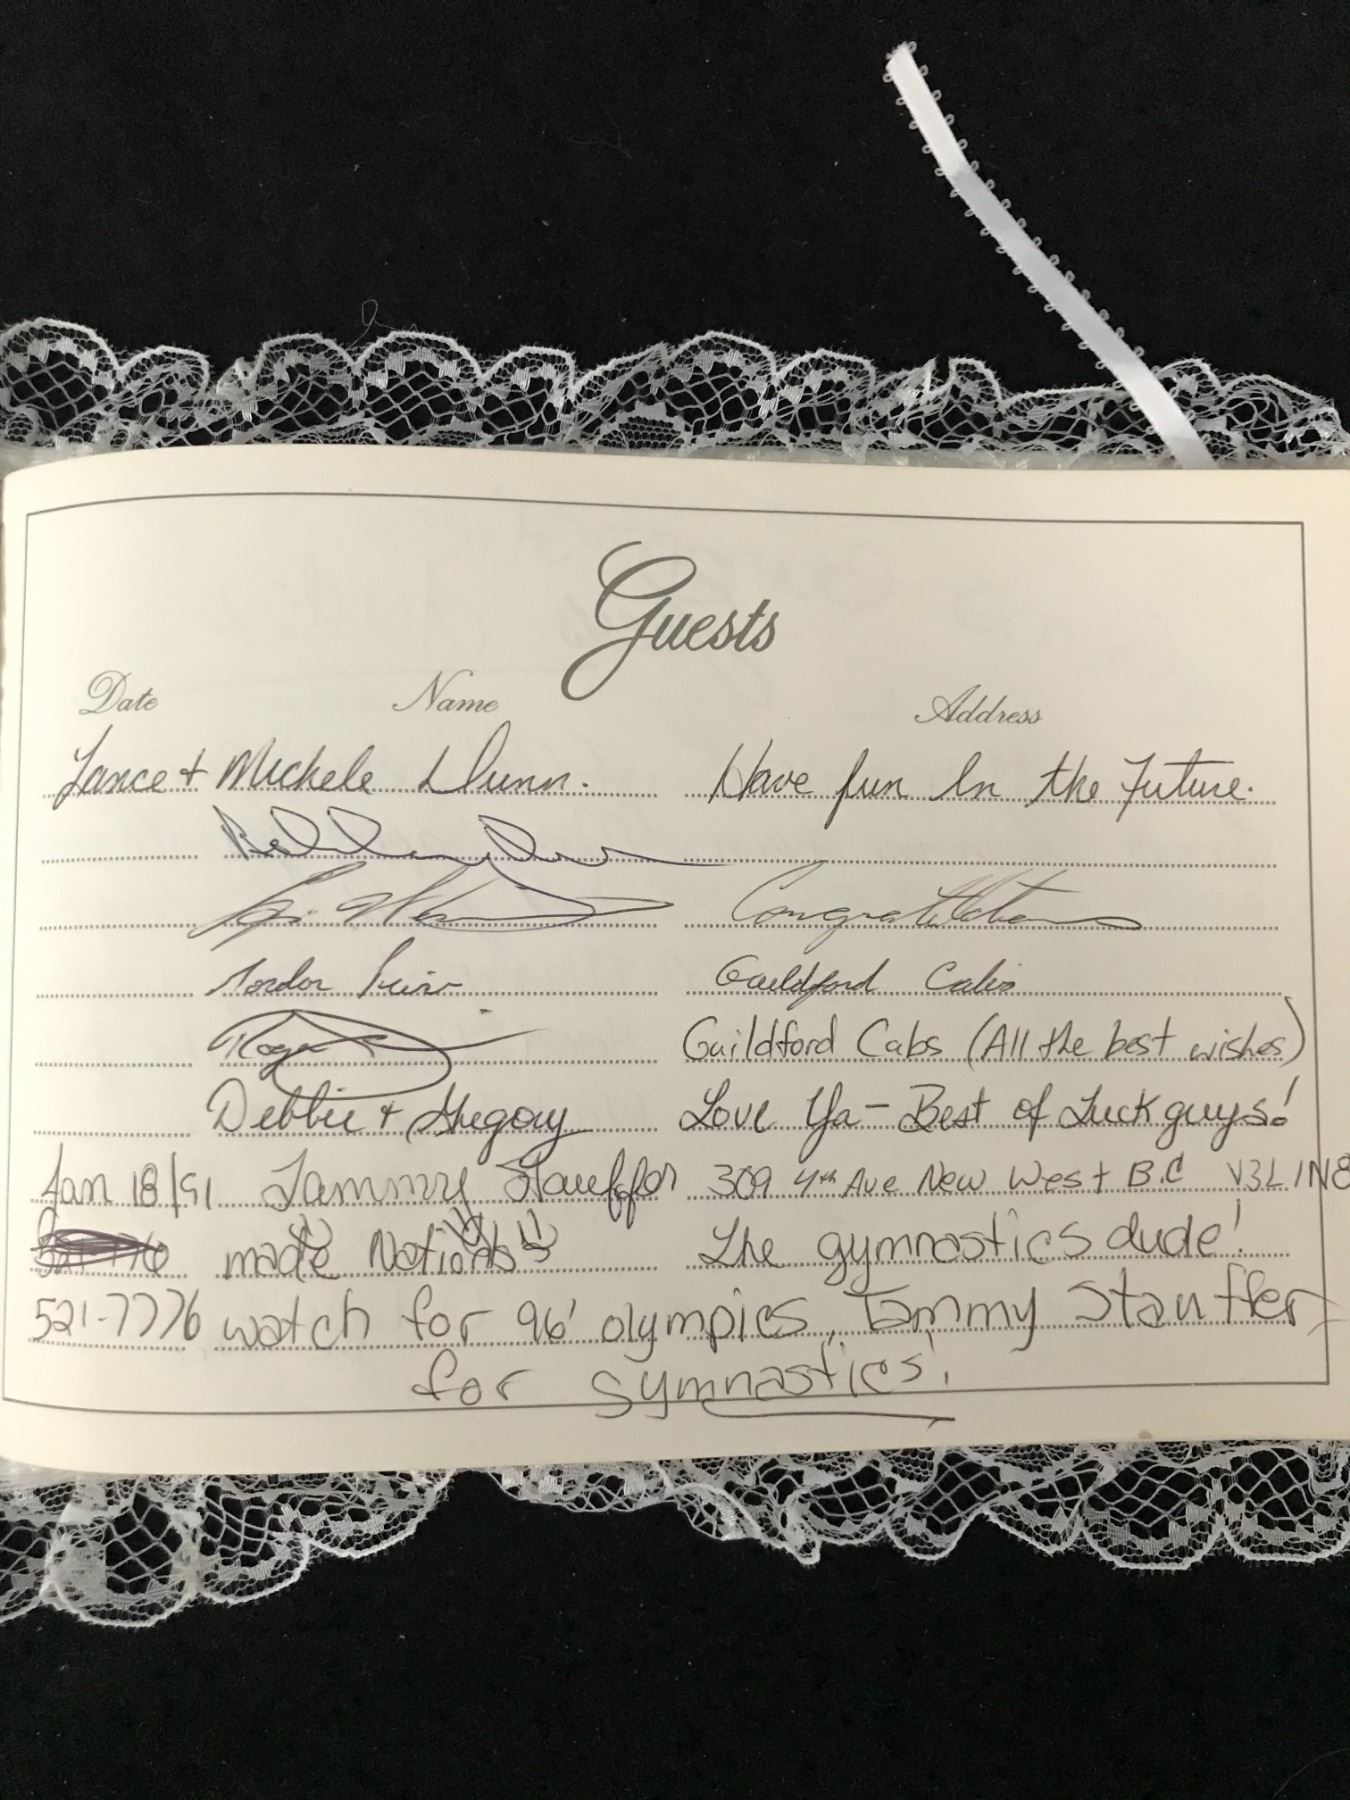 Guests
Date Name Address
Lance + Michele Dunn. Have fun In the Future.
Congratulations
Gordon Guildford Cabs
Roger Guildford Cabs (All the best wishes)
Debbie + Gregory Love Ya - Best of Luck guys!
Jan 18/91 Tammy Stauffer 309 4th Ave New West B.C V3L 1N8
made Nationals The gymnastics dude!
521-7776 watch for 96' olympics, Tammy Stauffer
for gymnastics!